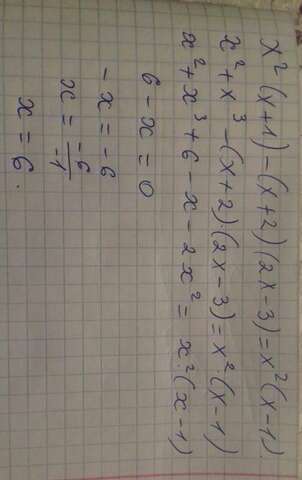 x² (x+1) - (x+2) (2x-3) = x² (x-1).
x² + x³ - (x+2)·(2x-3) = x²·(x-1)
x² + x³ + 6 - x - 2x² = x²·(x-1)
6 - x = 0
-x = -6
x = -6/-1
x = 6.